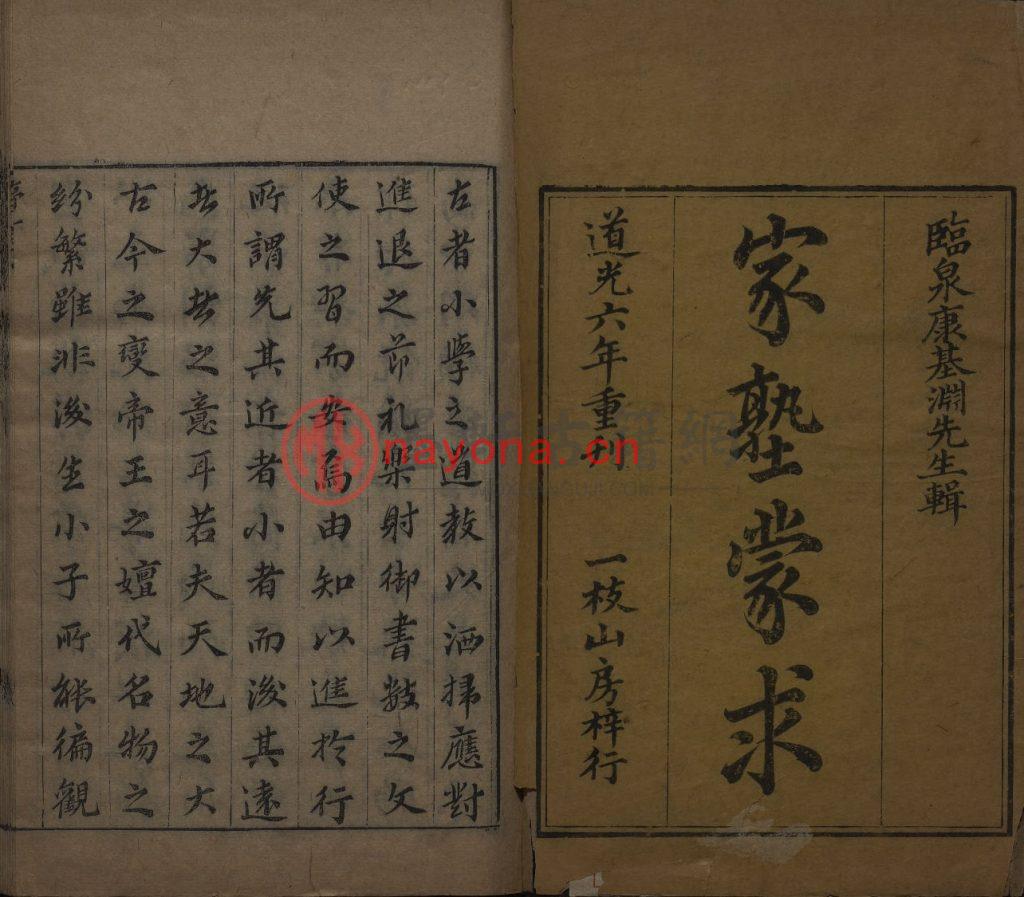 臨泉康基淵先生輯
家塾蒙求
道光六年重刊 一枝山房梓行
古者小學之道教以洒掃應對
進退之節礼樂射御書數之文
使之習而安焉由知以進於行
所謂先其近者小者而後其遠
者大者之意耳若夫天地之大
古今之變帝王之嬗代名物之
紛繁雖非後生小子所能徧觀
nayona.cn